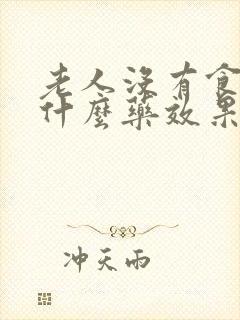 老人没有食
什麼藥效果
冲天雨